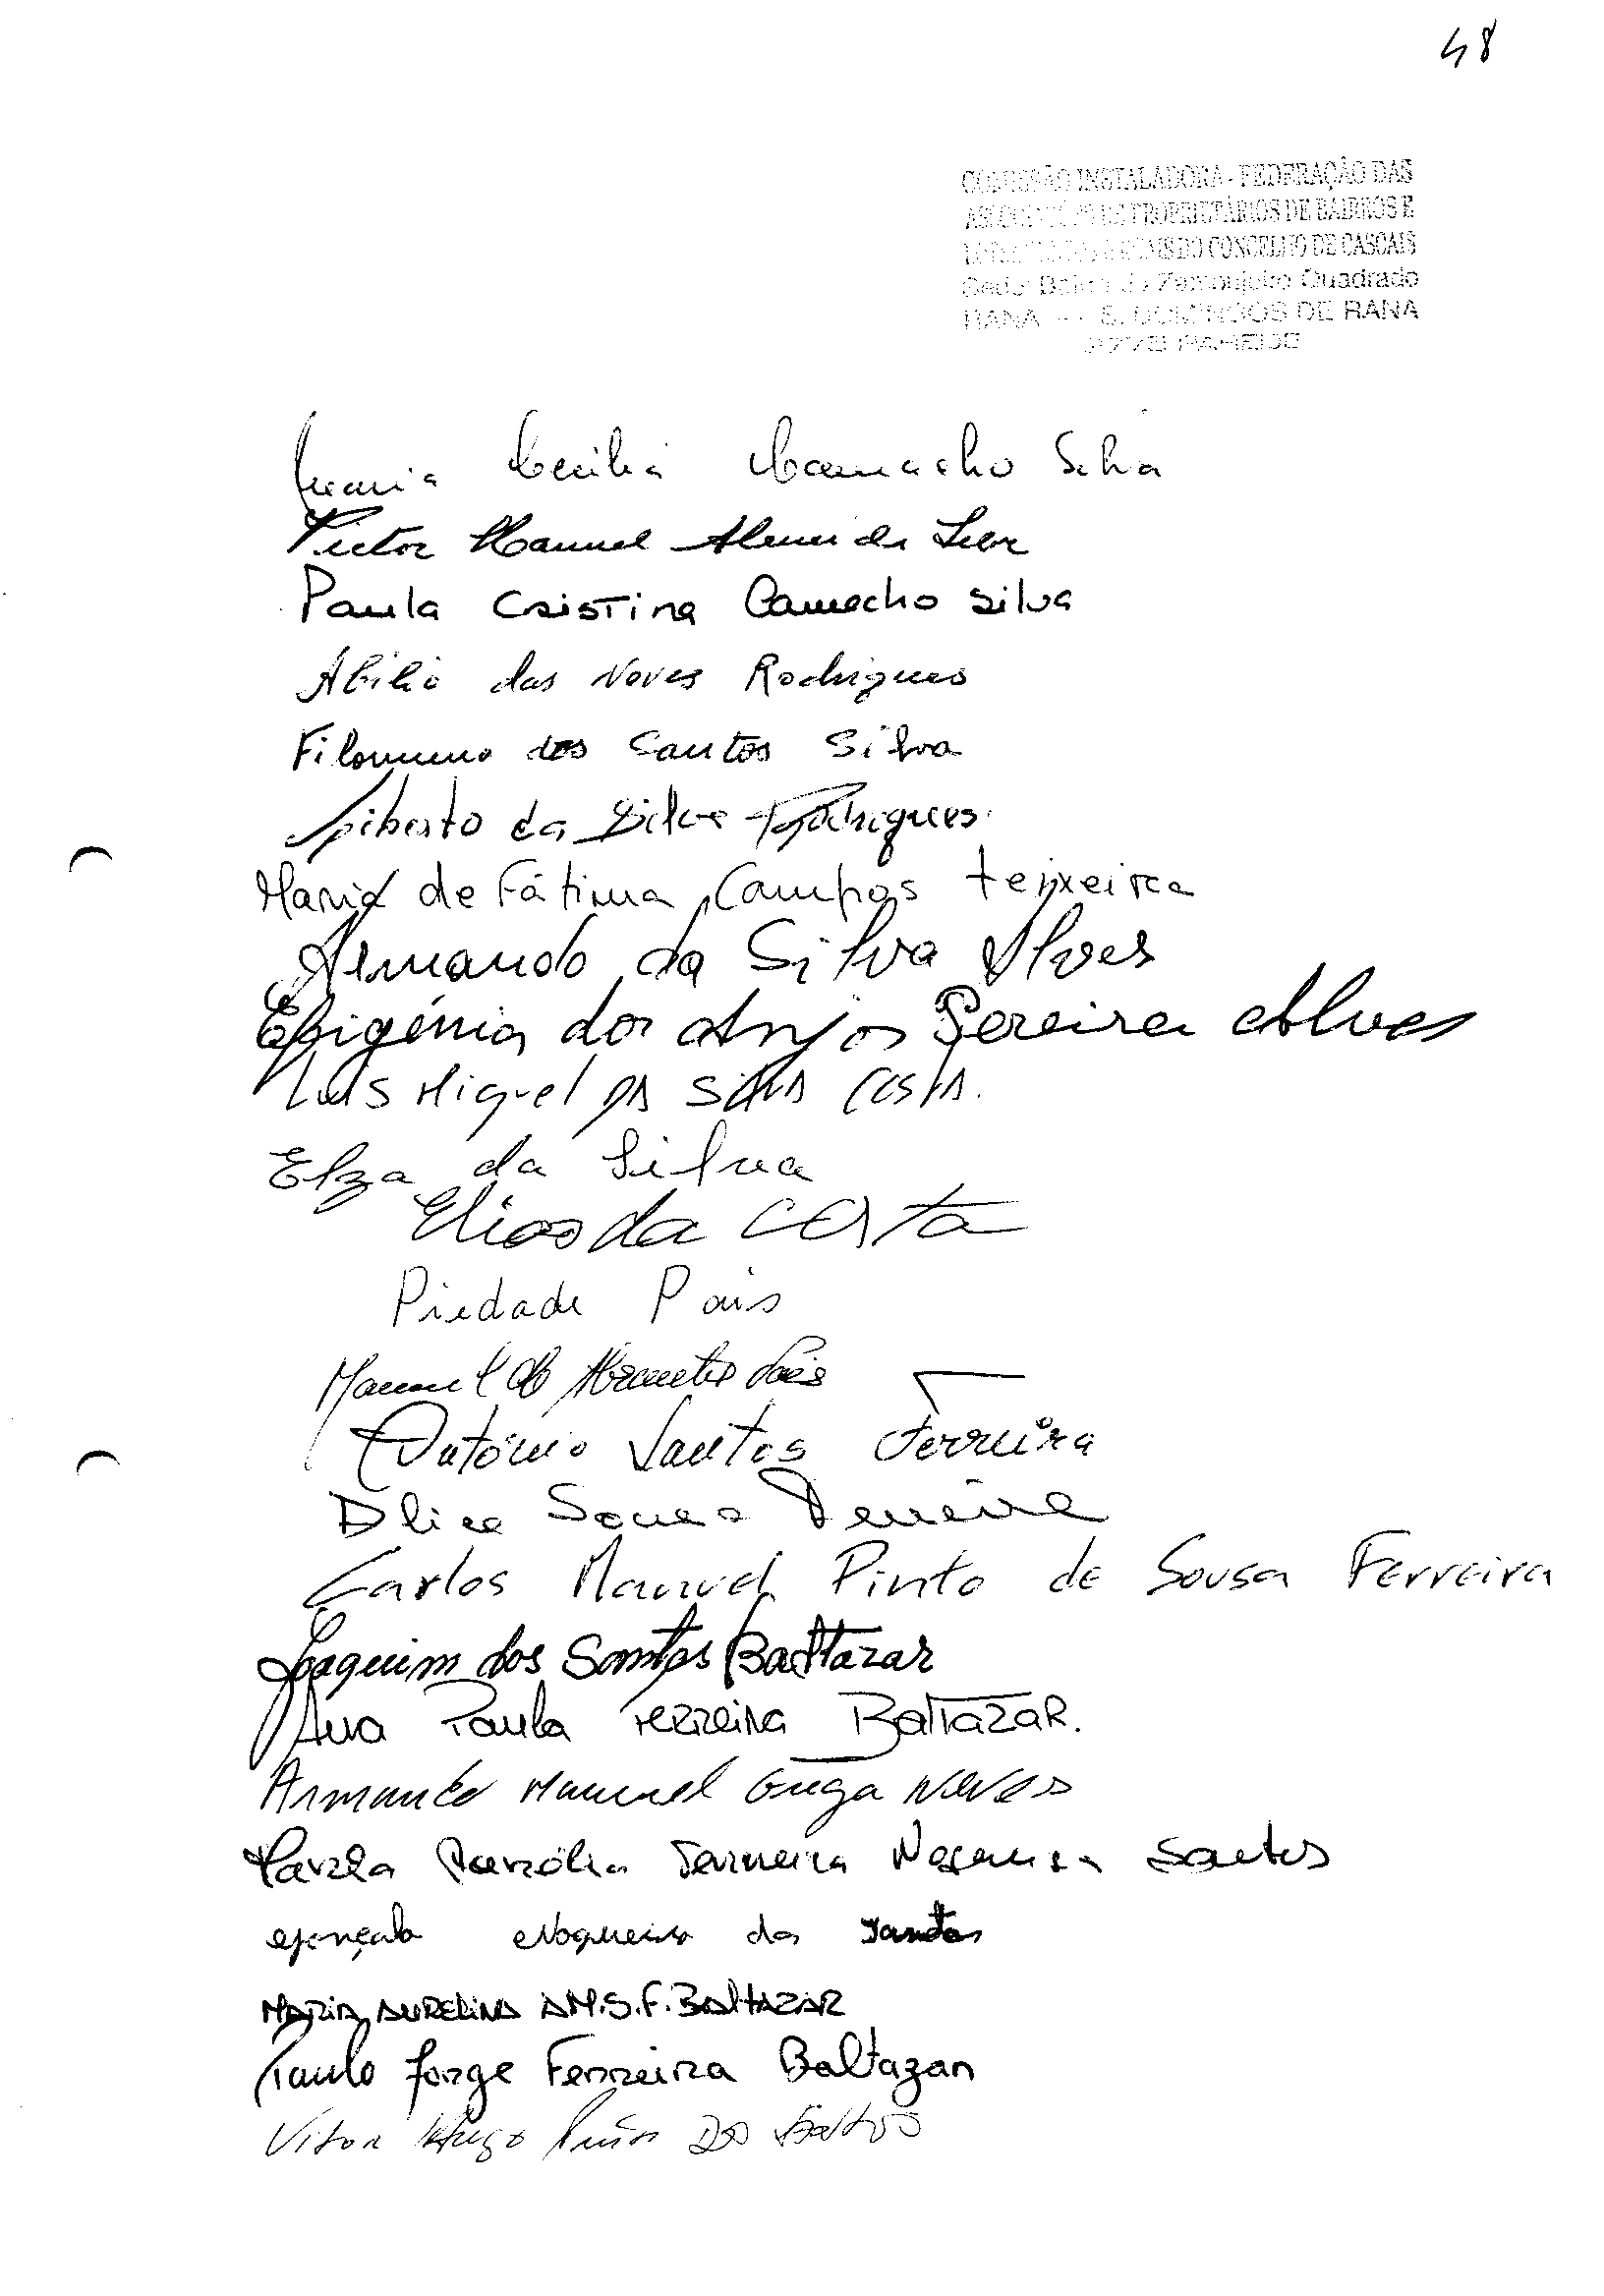 48
COMISSÃO INSTALADORA - FEDERAÇÃO DAS
ASSOCIAÇÕES DE PROPRIETÁRIOS DE BAIRROS E
DO CONCELHO DE CASCAIS
Sede: Bairro Quadrado
RANA - S. DOMINGOS DE RANA
2775 PAREDE
Maria Cecilia Camacho Silva
Victor Manuel Almeida
Paula Cristina Camacho Silva
Abilio das Neves Rodrigues
Filomena dos Santos Silva
da Silva Rodrigues
Maria de Fátima Campos Teixeira
Armando da Silva Alves
Efigénia dos Anjos Pereira Alves
Luis Miguel da Silva Costa.
Elza da Silva
Elias da Costa
Piedade Pais
Manuel de Abrantes Pais
António Santos Ferreira
Alice Sousa Ferreira
Carlos Manuel Pinto de Sousa Ferreira
Joaquim dos Santos Baltazar
Ana Paula Ferreira Baltazar.
Armando Manuel Neves
Ferreira Nogueira Santos
Gonçalo Nogueira dos Santos
MARIA AURELINA A.M.S.F. BALTAZAR
Paulo Jorge Ferreira Baltazar
Vitor Hugo dos Santos